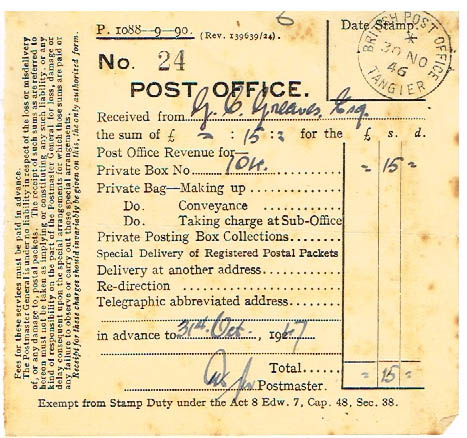 P. 1088—9—90. (Rev. 139639/24.)
Date Stamp.
BRITISH POST OFFICE
*
30 NO
46
TANGIER
No. 24
POST OFFICE.
Received from G. C. Greaves, Esq.
the sum of £ = : 15 : = for the £ s. d.
Post Office Revenue for—
Private Box No. 104. = 15 =
Private Bag—Making up
Do. Conveyance
Do. Taking charge at Sub-Office
Private Posting Box Collections
Special Delivery of Registered Postal Packets
Delivery at another address
Re-direction
Telegraphic abbreviated address
in advance to 31st Oct, 1947
Total = 15 =
Postmaster.
Exempt from Stamp Duty under the Act 8 Edw. 7, Cap. 48, Sec. 38.
Fees for these services must be paid in advance.
The Postmaster General is under no liability in respect of the loss or misdelivery
of, or any damage to, postal packets. The receipt of such sums as are referred to
hereon must not be taken as implying or constituting any such liability, or any
kind of responsibility on the part of the Postmaster General for loss, damage or
delay consequent upon the special arrangements for which those sums are paid or
any failure to observe or carry out those special arrangements.
Receipts for these charges should invariably be given on this, the only authorised form.